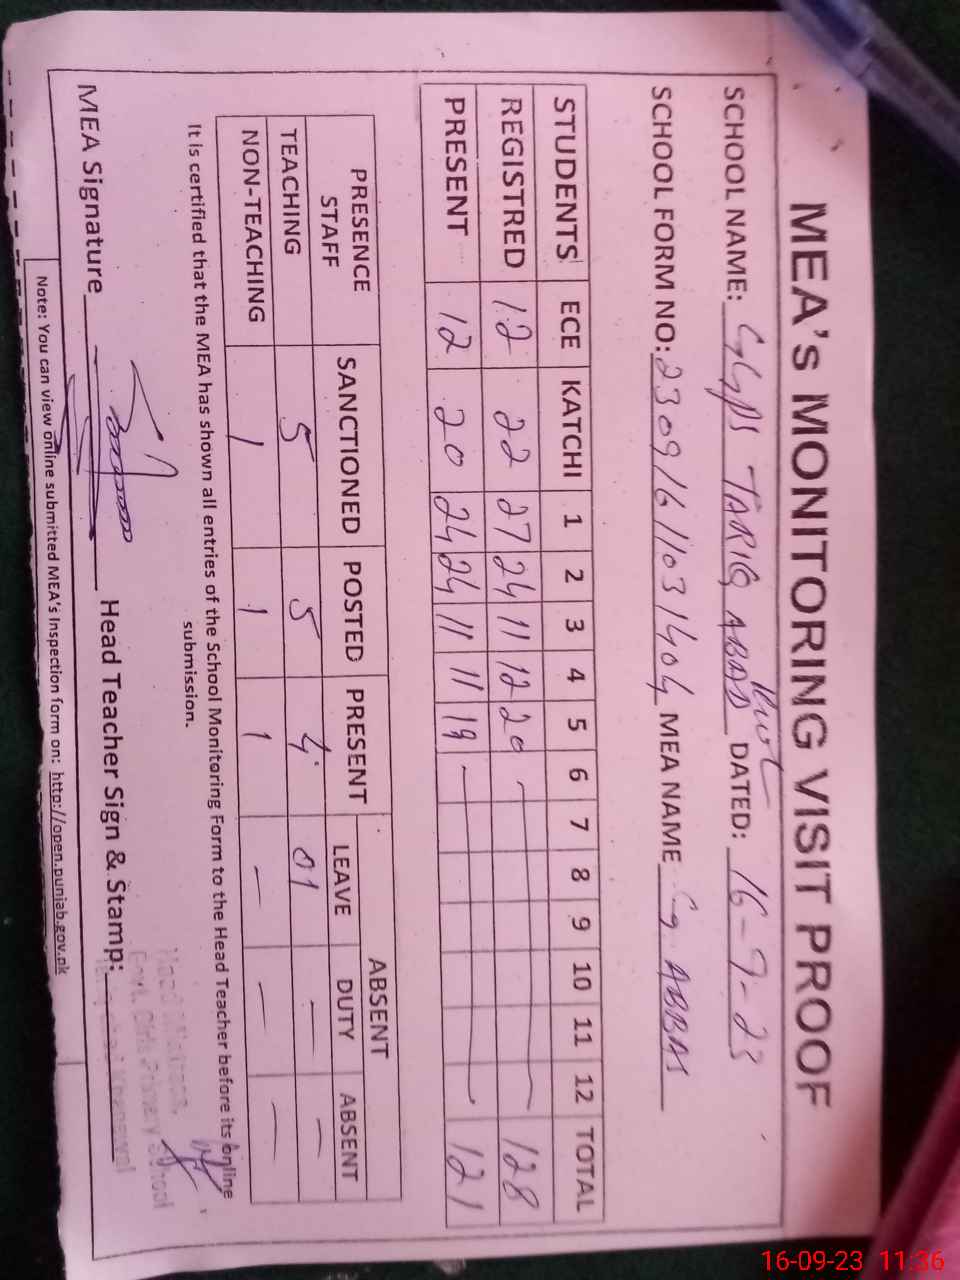 MEA's MONITORING VISIT PROOF
SCHOOL NAME: GGPS TARIQ ABAD DATED: 16-9-23
SCHOOL FORM NO: 23091611031404 MEA NAME G. ABBAS
STUDENTS ECE KATCHI 1 2 3 4 5 6 7 8 9 10 11 12 TOTAL
REGISTRED 12 22 27 24 11 12 20 - 128
PRESENT 12 20 24 24 11 11 19 - 121
PRESENCE STAFF SANCTIONED POSTED PRESENT ABSENT
LEAVE DUTY ABSENT
TEACHING 5 5 4 01 - -
NON-TEACHING 1 1 1 - - -
It is certified that the MEA has shown all entries of the School Monitoring Form to the Head Teacher before its online
submission.
MEA Signature Head Teacher Sign & Stamp:
Head Mistress,
Govt. Girls Primary School
Khanewal
Note: You can view online submitted MEA's Inspection form on: http://open.punjab.gov.pk
16-09-23 11:36